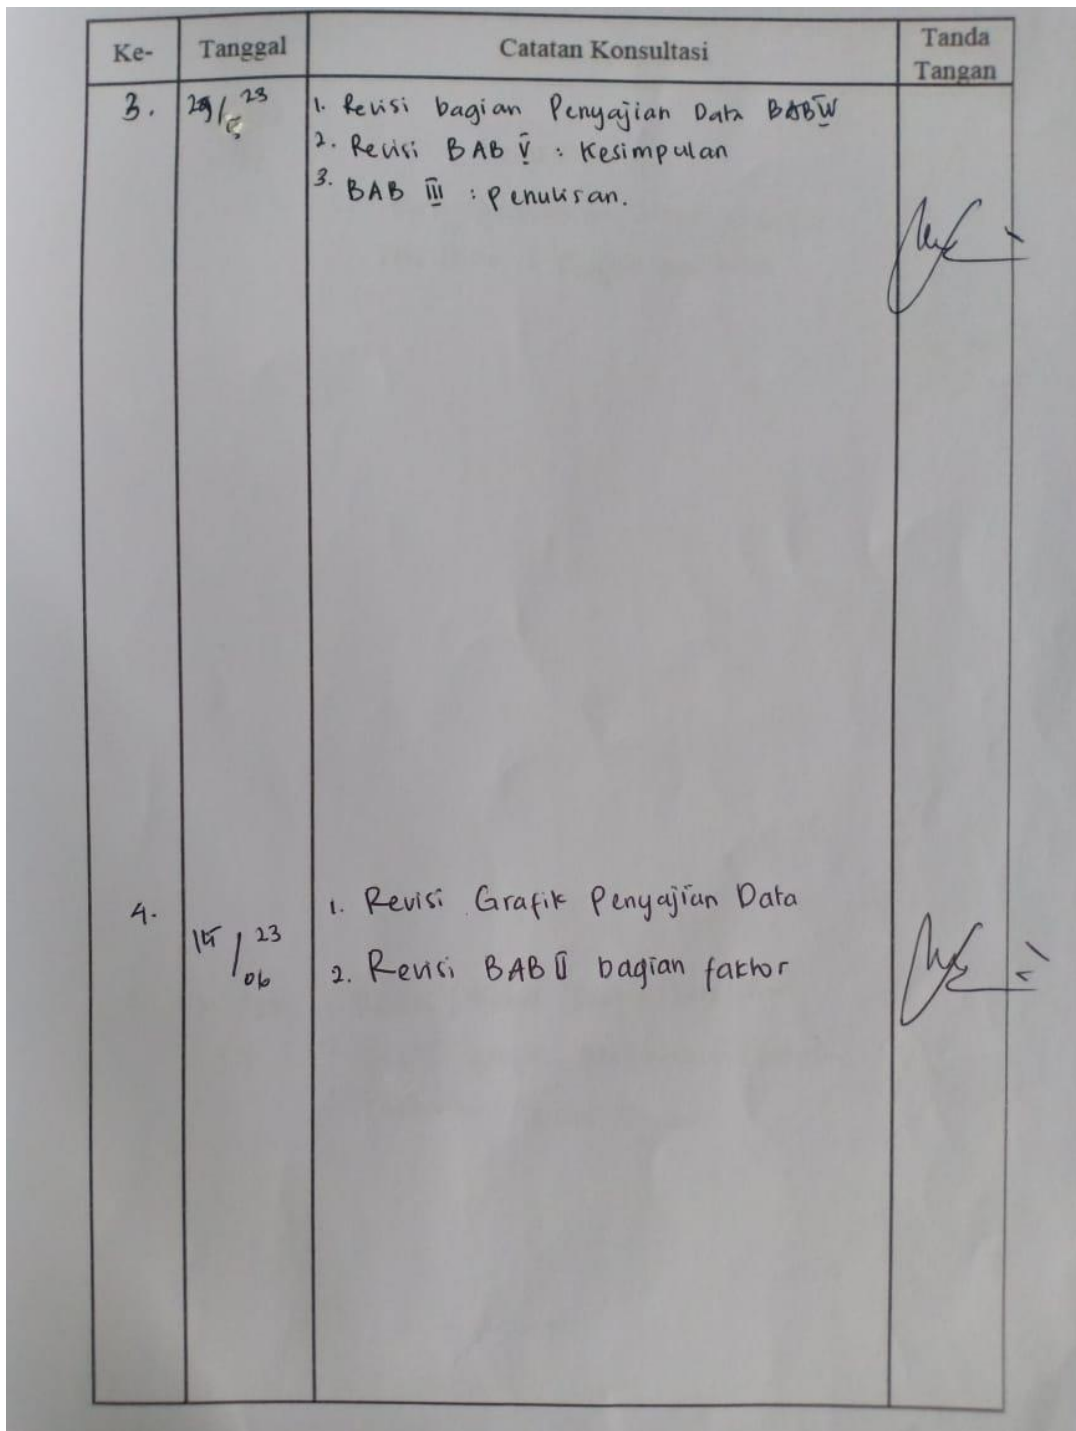 Ke- Tanggal Catatan Konsultasi Tanda Tangan
3. 29/5 23 1. Revisi bagian Penyajian Data BAB IV
2. Revisi BAB V : Kesimpulan
3. BAB III : Penulisan.
4. 1. Revisi Grafik Penyajian Data
15/06 23 2. Revisi BAB II bagian faktor